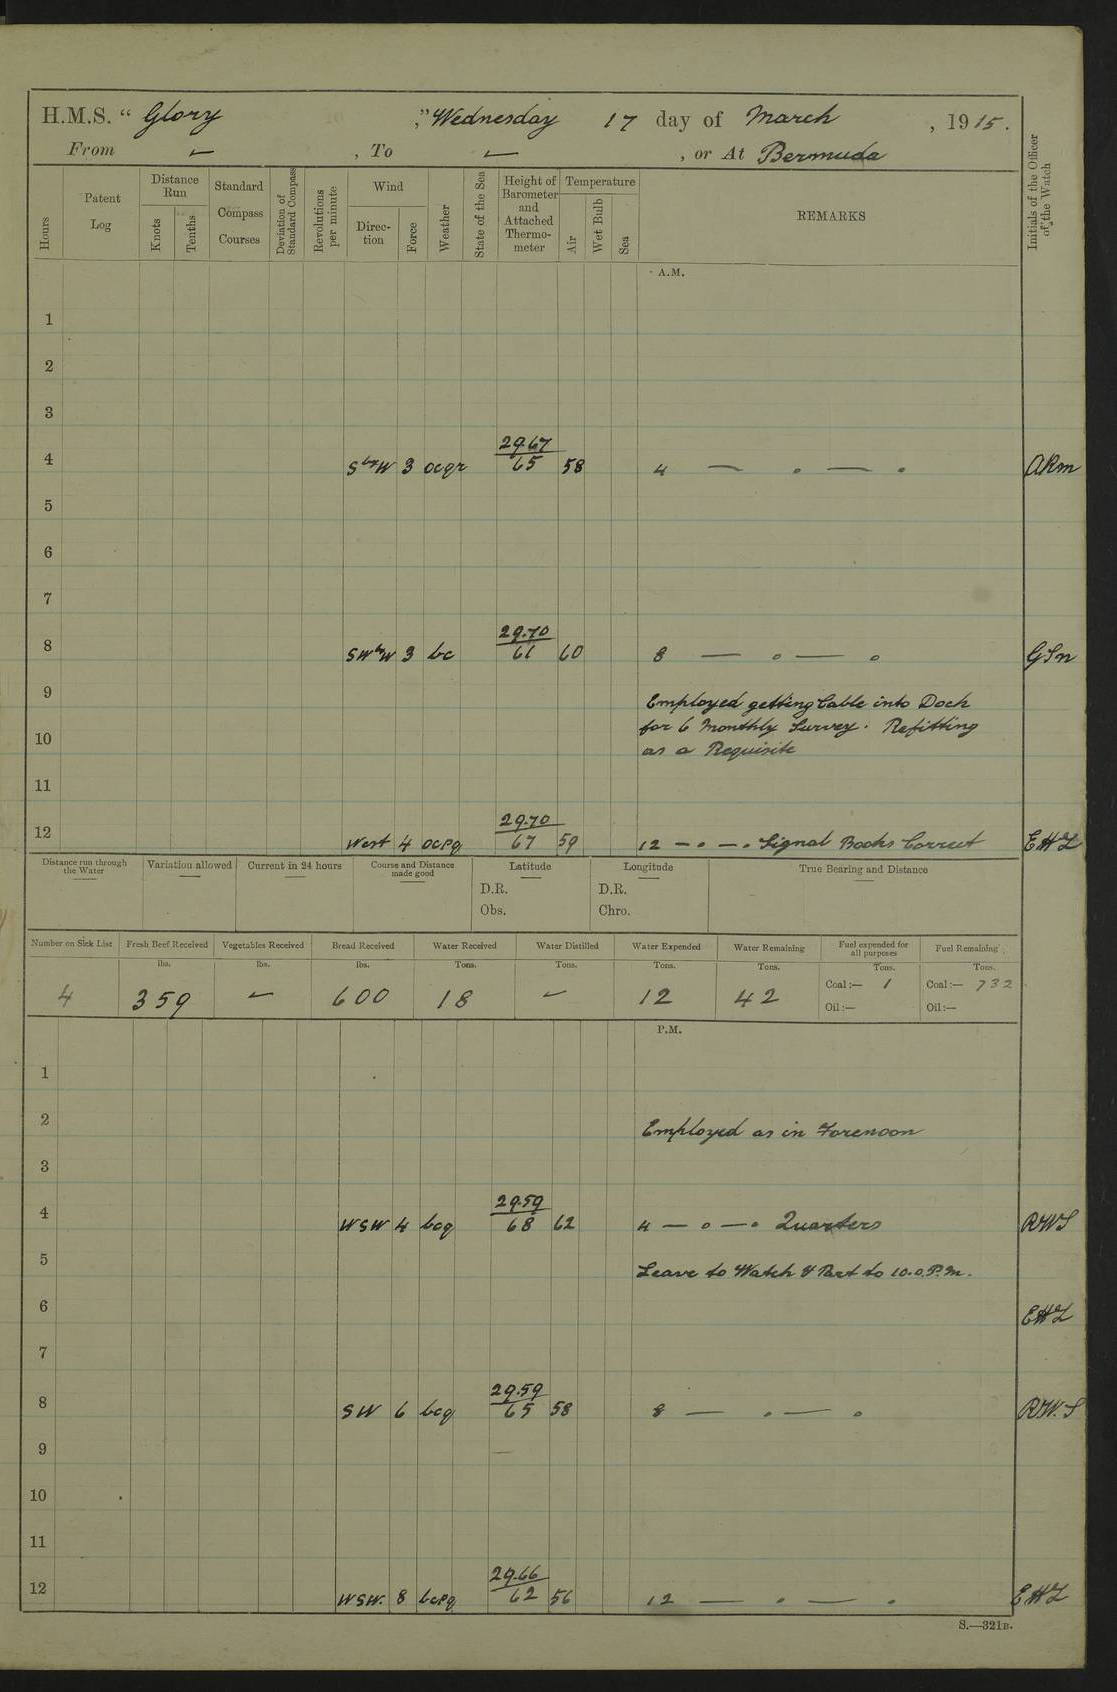 H.M.S. "Glory," Wednesday 17 day of March, 1915.
From ~ , To ~ , or At Bermuda
Hours
Patent Log
Distance Run
Knots
Tenths
Standard Compass Courses
Deviation of Standard Compass
Revolutions per minute
Wind
Direction
Force
Weather
State of the Sea
Height of Barometer and Attached Thermometer
Temperature
Air
Wet Bulb
Sea
REMARKS
Initials of the Officer of the Watch
A.M.
1
2
3
29.67
4 SbyW 3 ocqr 65 58 4 — o — o ARM
5
6
7
29.70
8 SWbW 3 bc 61 60 8 — o — o GSN
9 Employed getting Cable into Dock
for 6 Monthly Survey. Refitting
10 as a Requisite
11
29.70
12 West 4 ocpq 67 59 12 — o — o Signal Books Correct EHL
Distance run through the Water
Variation allowed
Current in 24 hours
Course and Distance made good
Latitude
D.R.
Obs.
Longitude
D.R.
Chro.
True Bearing and Distance
Number on Sick List
Fresh Beef Received
Vegetables Received
Bread Received
Water Received
Water Distilled
Water Expended
Water Remaining
Fuel expended for all purposes
Fuel Remaining
lbs. lbs. lbs. Tons. Tons. Tons. Tons. Tons. Tons.
4 359 ~ 600 18 ~ 12 42 Coal:— 1 Coal:— 732
Oil:— Oil:—
P.M.
1
2 Employed as in Forenoon
3
29.59
4 WSW 4 bcq 68 62 4 — o — o Quarters RWS
5 Leave to Watch & Part to 10.0.P.M.
6 EHL
7
29.59
8 SW 6 bcq 65 58 8 — o — o RW.S
9
10
11
29.66
12 WSW. 8 bcpq 62 56 12 — o — o EHL
S.—321B.